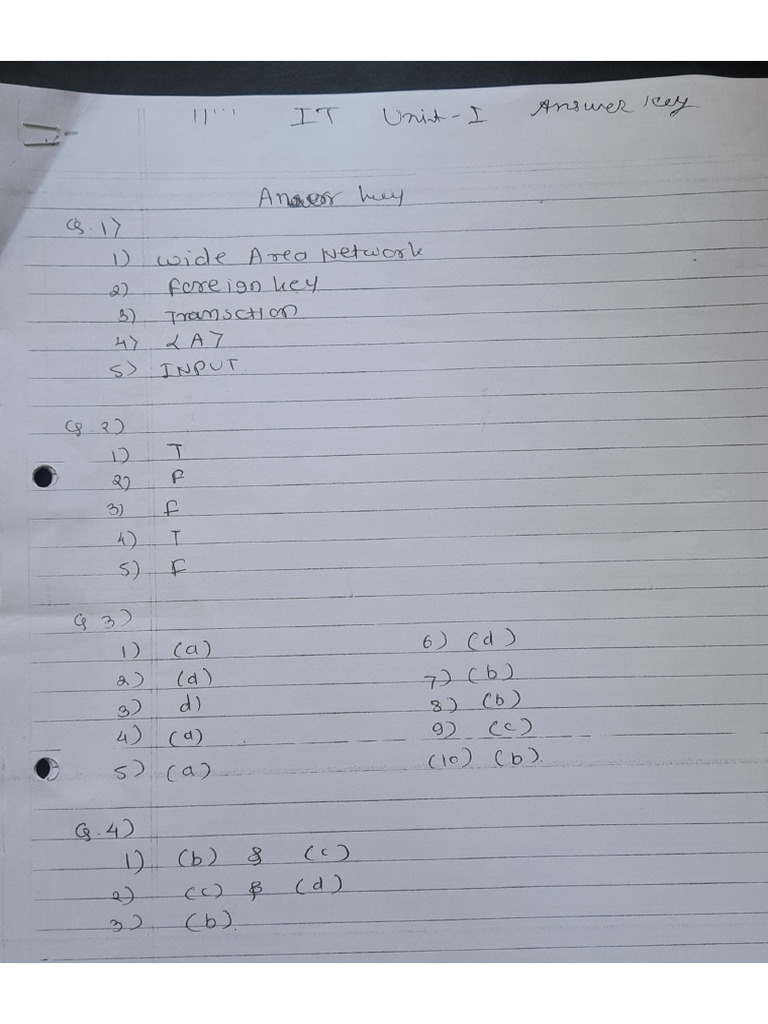 11... IT Unit-I Answer key
Answer key
Q.1)
1) Wide Area Network
2) foreign key
3) Transction
4) <A>
5) INPUT
Q.2)
1) T
2) F
3) F
4) T
5) F
Q 3)
1) (a) 6) (d)
2) (d) 7) (b)
3) d) 8) (b)
4) (d) 9) (c)
5) (a) (10) (b).
Q.4)
1) (b) & (c)
2) (c) & (d)
3) (b).